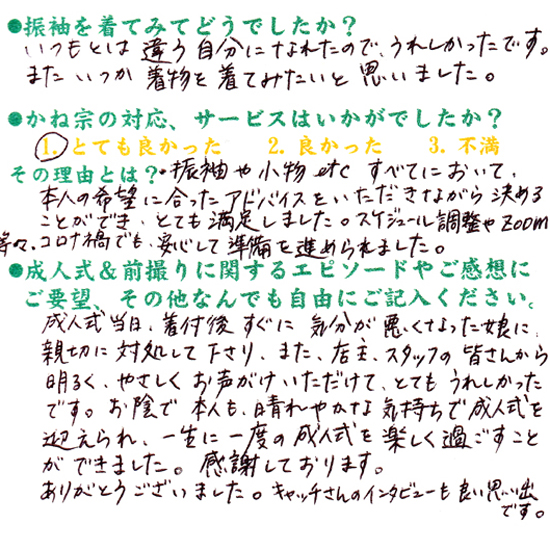 ●振袖を着てみてどうでしたか?
いつもとは違う自分になれたので、うれしかったです。
またいつか着物を着てみたいと思いました。
●かね宗の対応、サービスはいかがでしたか?
1. とても良かった 2. 良かった 3. 不満
その理由とは?・振袖や小物etcすべてにおいて、
本人の希望に合ったアドバイスをいただきながら決める
ことができ、とても満足しました。スケジュール調整やZoom
等々、コロナ禍でも、安心して準備を進められました。
●成人式&前撮りに関するエピソードやご感想に
ご要望、その他なんでも自由にご記入ください。
成人式当日、着付後すぐに気分が悪くなった娘に、
親切に対処して下さり、また、店主、スタッフの皆さんから
明るく、やさしくお声がけいただけて、とてもうれしかった
です。お陰で本人も、晴れやかな気持ちで成人式を
迎えられ、一生に一度の成人式を楽しく過ごすこと
ができました。感謝しております。
ありがとうございました。キャッチさんのインタビューも良い思い出
です。